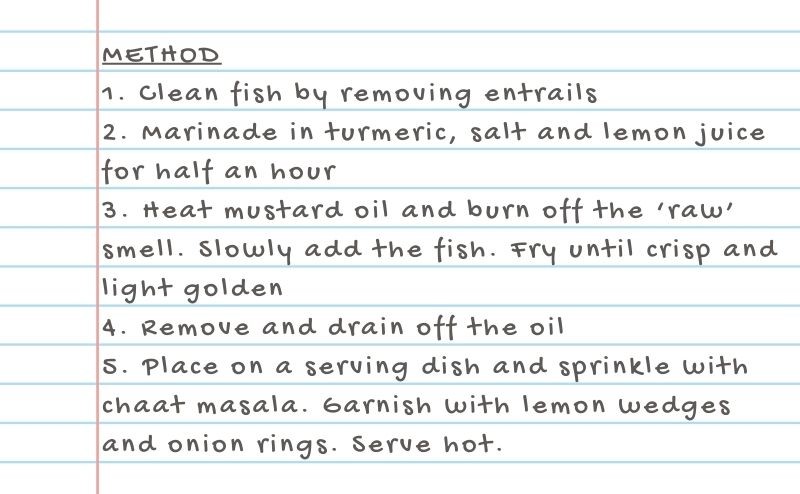 METHOD
1. Clean fish by removing entrails
2. Marinade in turmeric, salt and lemon juice
for half an hour
3. Heat mustard oil and burn off the 'raw'
smell. Slowly add the fish. Fry until crisp and
light golden
4. Remove and drain off the oil
5. Place on a serving dish and sprinkle with
chaat masala. Garnish with lemon wedges
and onion rings. Serve hot.